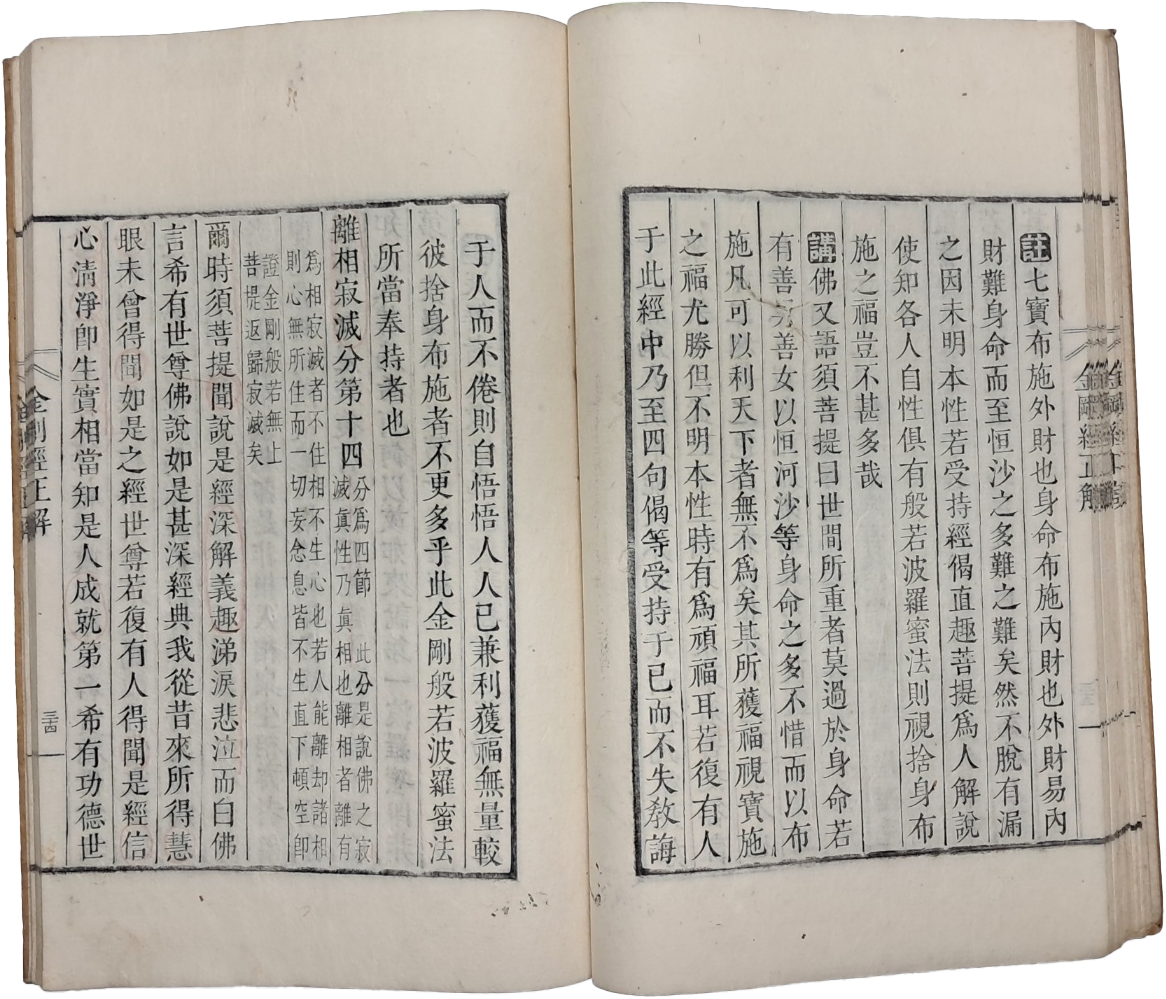 註七寶布施外財也身命布施內財也外財易內
財難身命而至恒沙之多難之難矣然不脫有漏
之因未明本性若受持經偈直趣菩提爲人解說
使知各人自性俱有般若波羅蜜法則視捨身布
施之福豈不甚多哉
講佛又語須菩提曰世間所重者莫過於身命若
有善男善女以恒河沙等身命之多不惜而以布
施凡可以利天下者無不爲矣其所獲福視寶施
之福尤勝但不明本性時有爲頑福耳若復有人
于此經中乃至四句偈等受持于已而不失教誨
于人而不倦則自悟悟人人已兼利獲福無量較
彼捨身布施者不更多乎此金剛般若波羅蜜法
所當奉持者也
離相寂滅分第十四
分爲四節 此分是說佛之寂
滅真性乃真相也離相者離有
爲相寂滅者不住相不生心也若人能離却諸相
則心無所住而一切妄念息皆不生直下頓空卽
證金剛般若無上
菩提返歸寂滅矣
爾時須菩提聞說是經深解義趣涕淚悲泣而白佛
言希有世尊佛說如是甚深經典我從昔來所得慧
眼未曾得聞如是之經世尊若復有人得聞是經信
心清淨卽生實相當知是人成就第一希有功德世
金剛經正解
三十四
金剛經正解